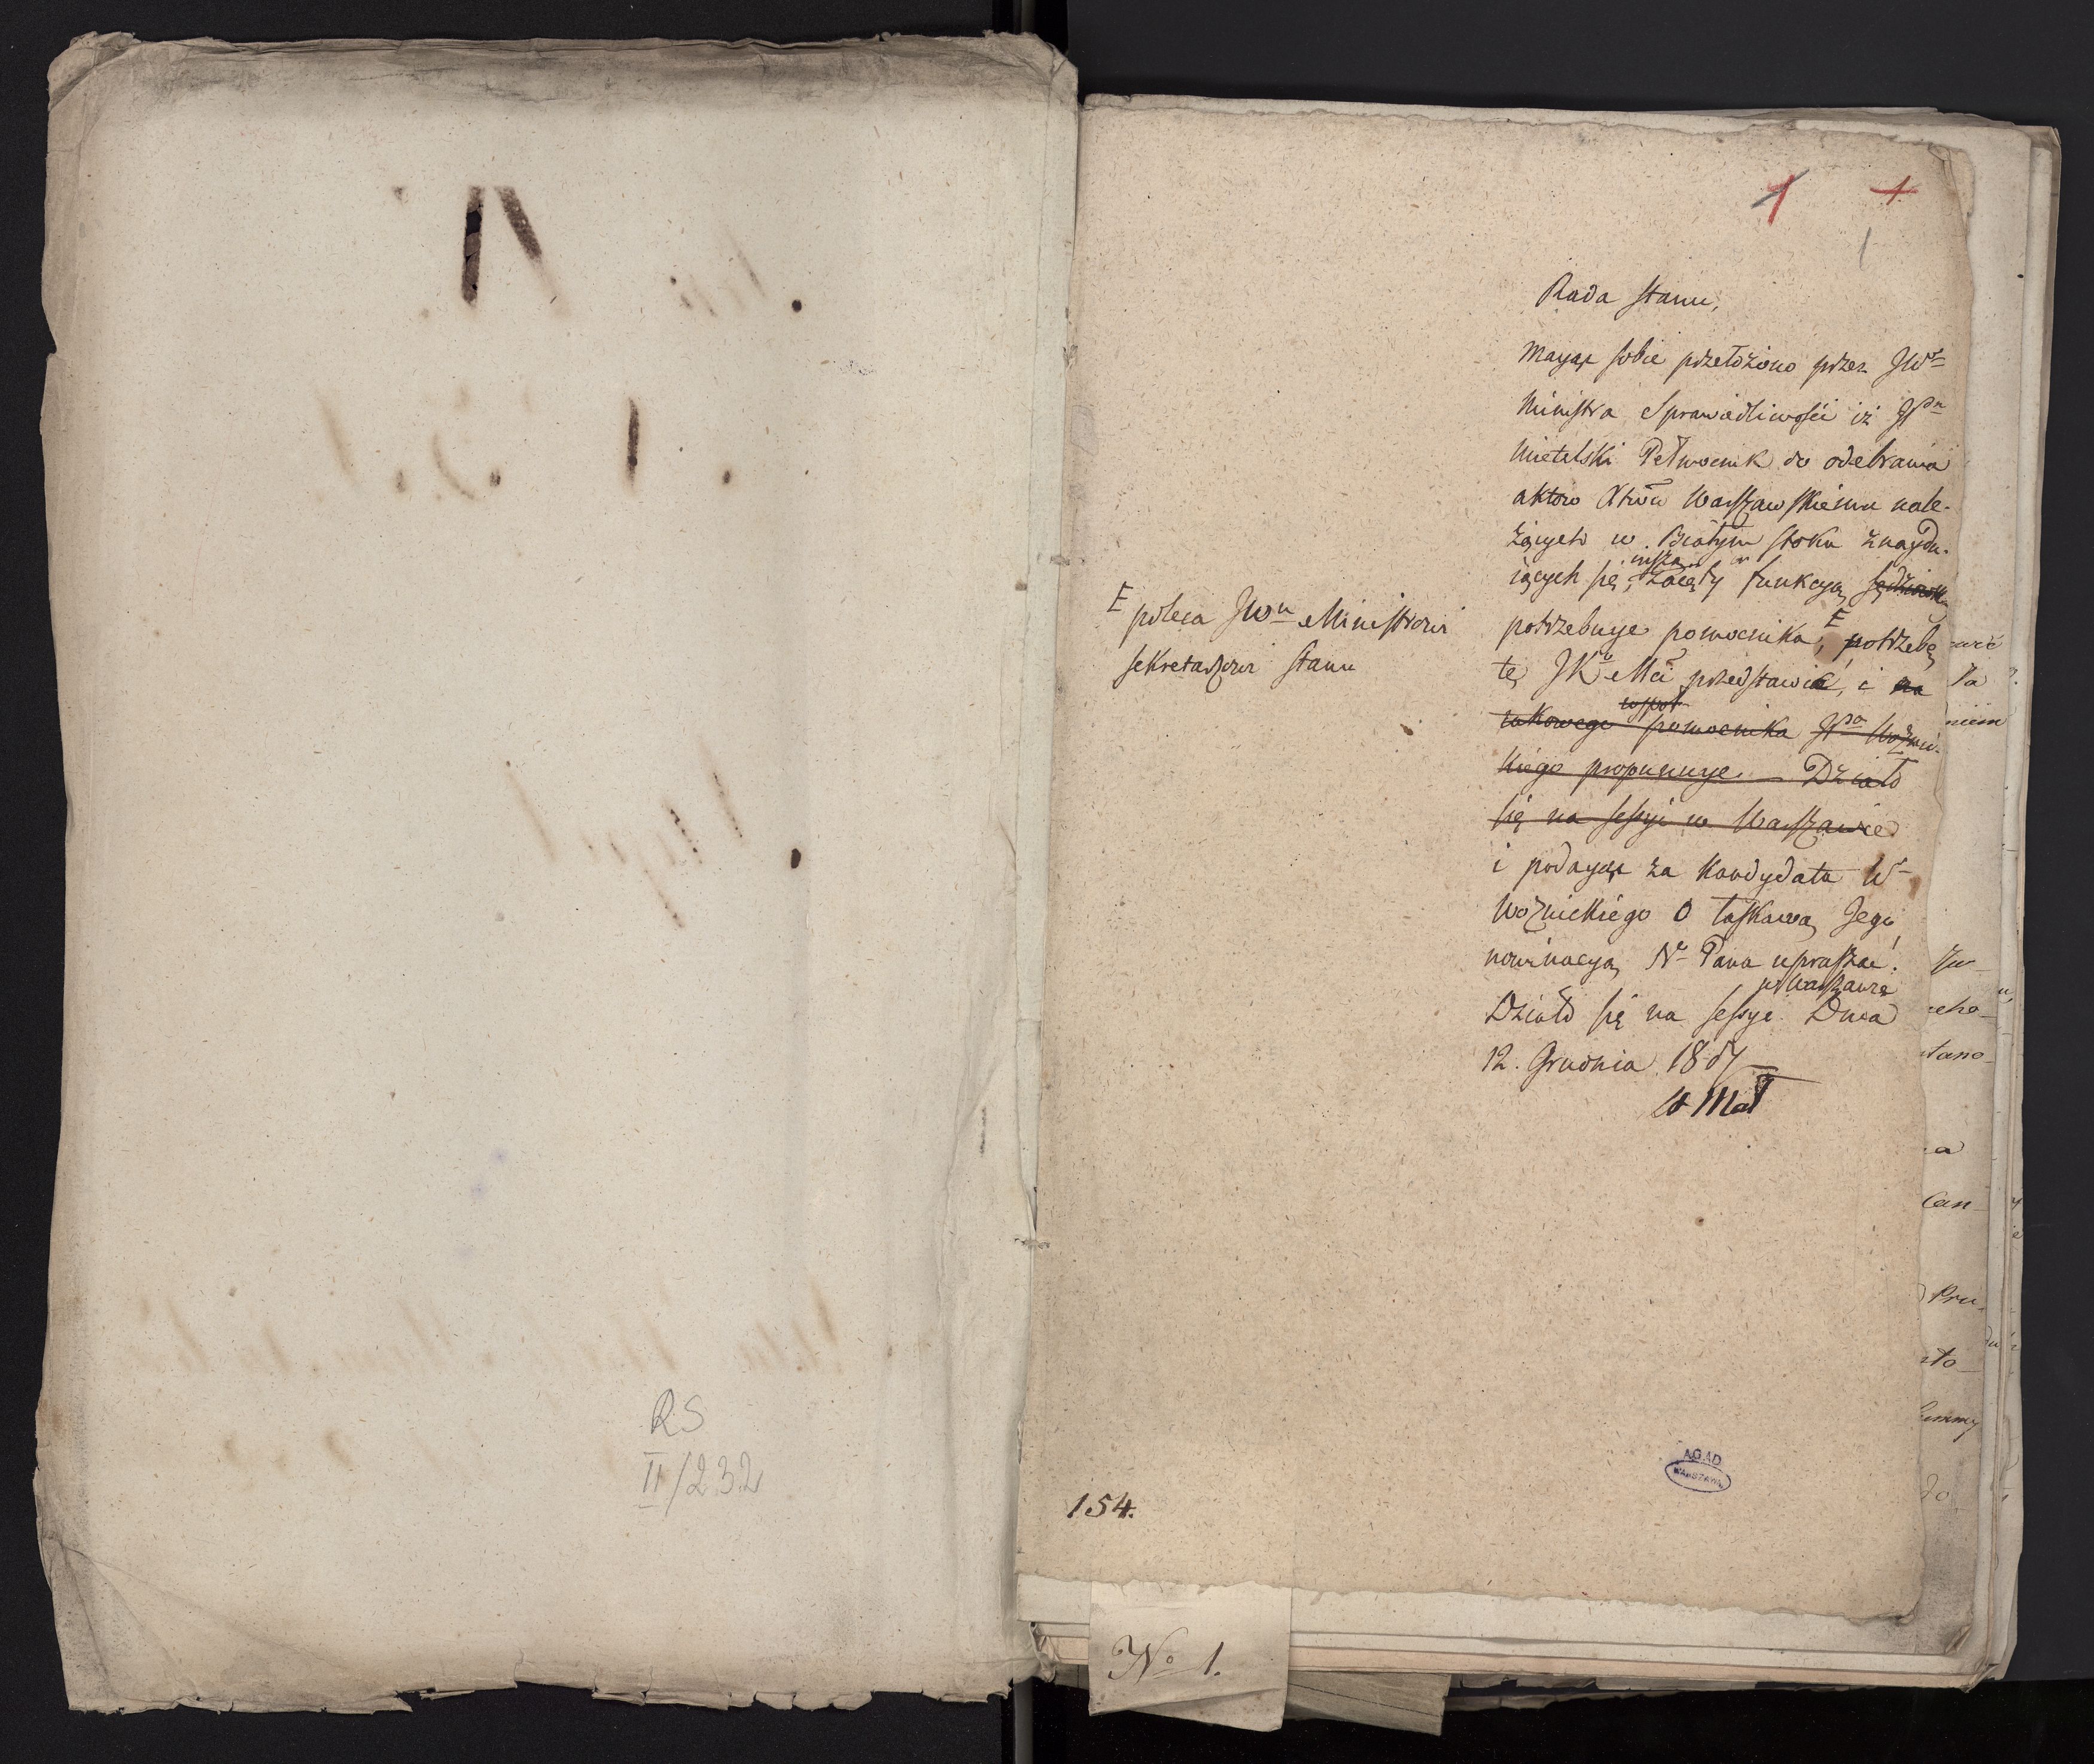 RS
II/232
1 1
1
Rada Stanu,
Maiąc sobie przełożono przez JWo
Ministra Sprawiedliwości iż JPn
Mietelski Pełnocnik do odebrania
aktow Xtwu Warszawskiemu nale-
żących w Białym stoku znaydu-
iących się, zaięty funkcyą
potrzebuie pomocnika, E potrzebę
tę JKMci przedstawić, i na
takowego wspol pomocnika JPa Woźnic-
kiego proponuie. Działo
się na sessyi w Warszawie
i podaiąc za Kandydata W
Woźnickiego o łaskawą Jego
nominacyą No Pana upraszać.
w Warszawie
Działo się na sessyi Dnia
12. Grudnia 1807
St Mał
E poleca JWnu Ministrowi
Sekretarzowi Stanu
154.
A.G.A.D
WARSZAWA
No 1.